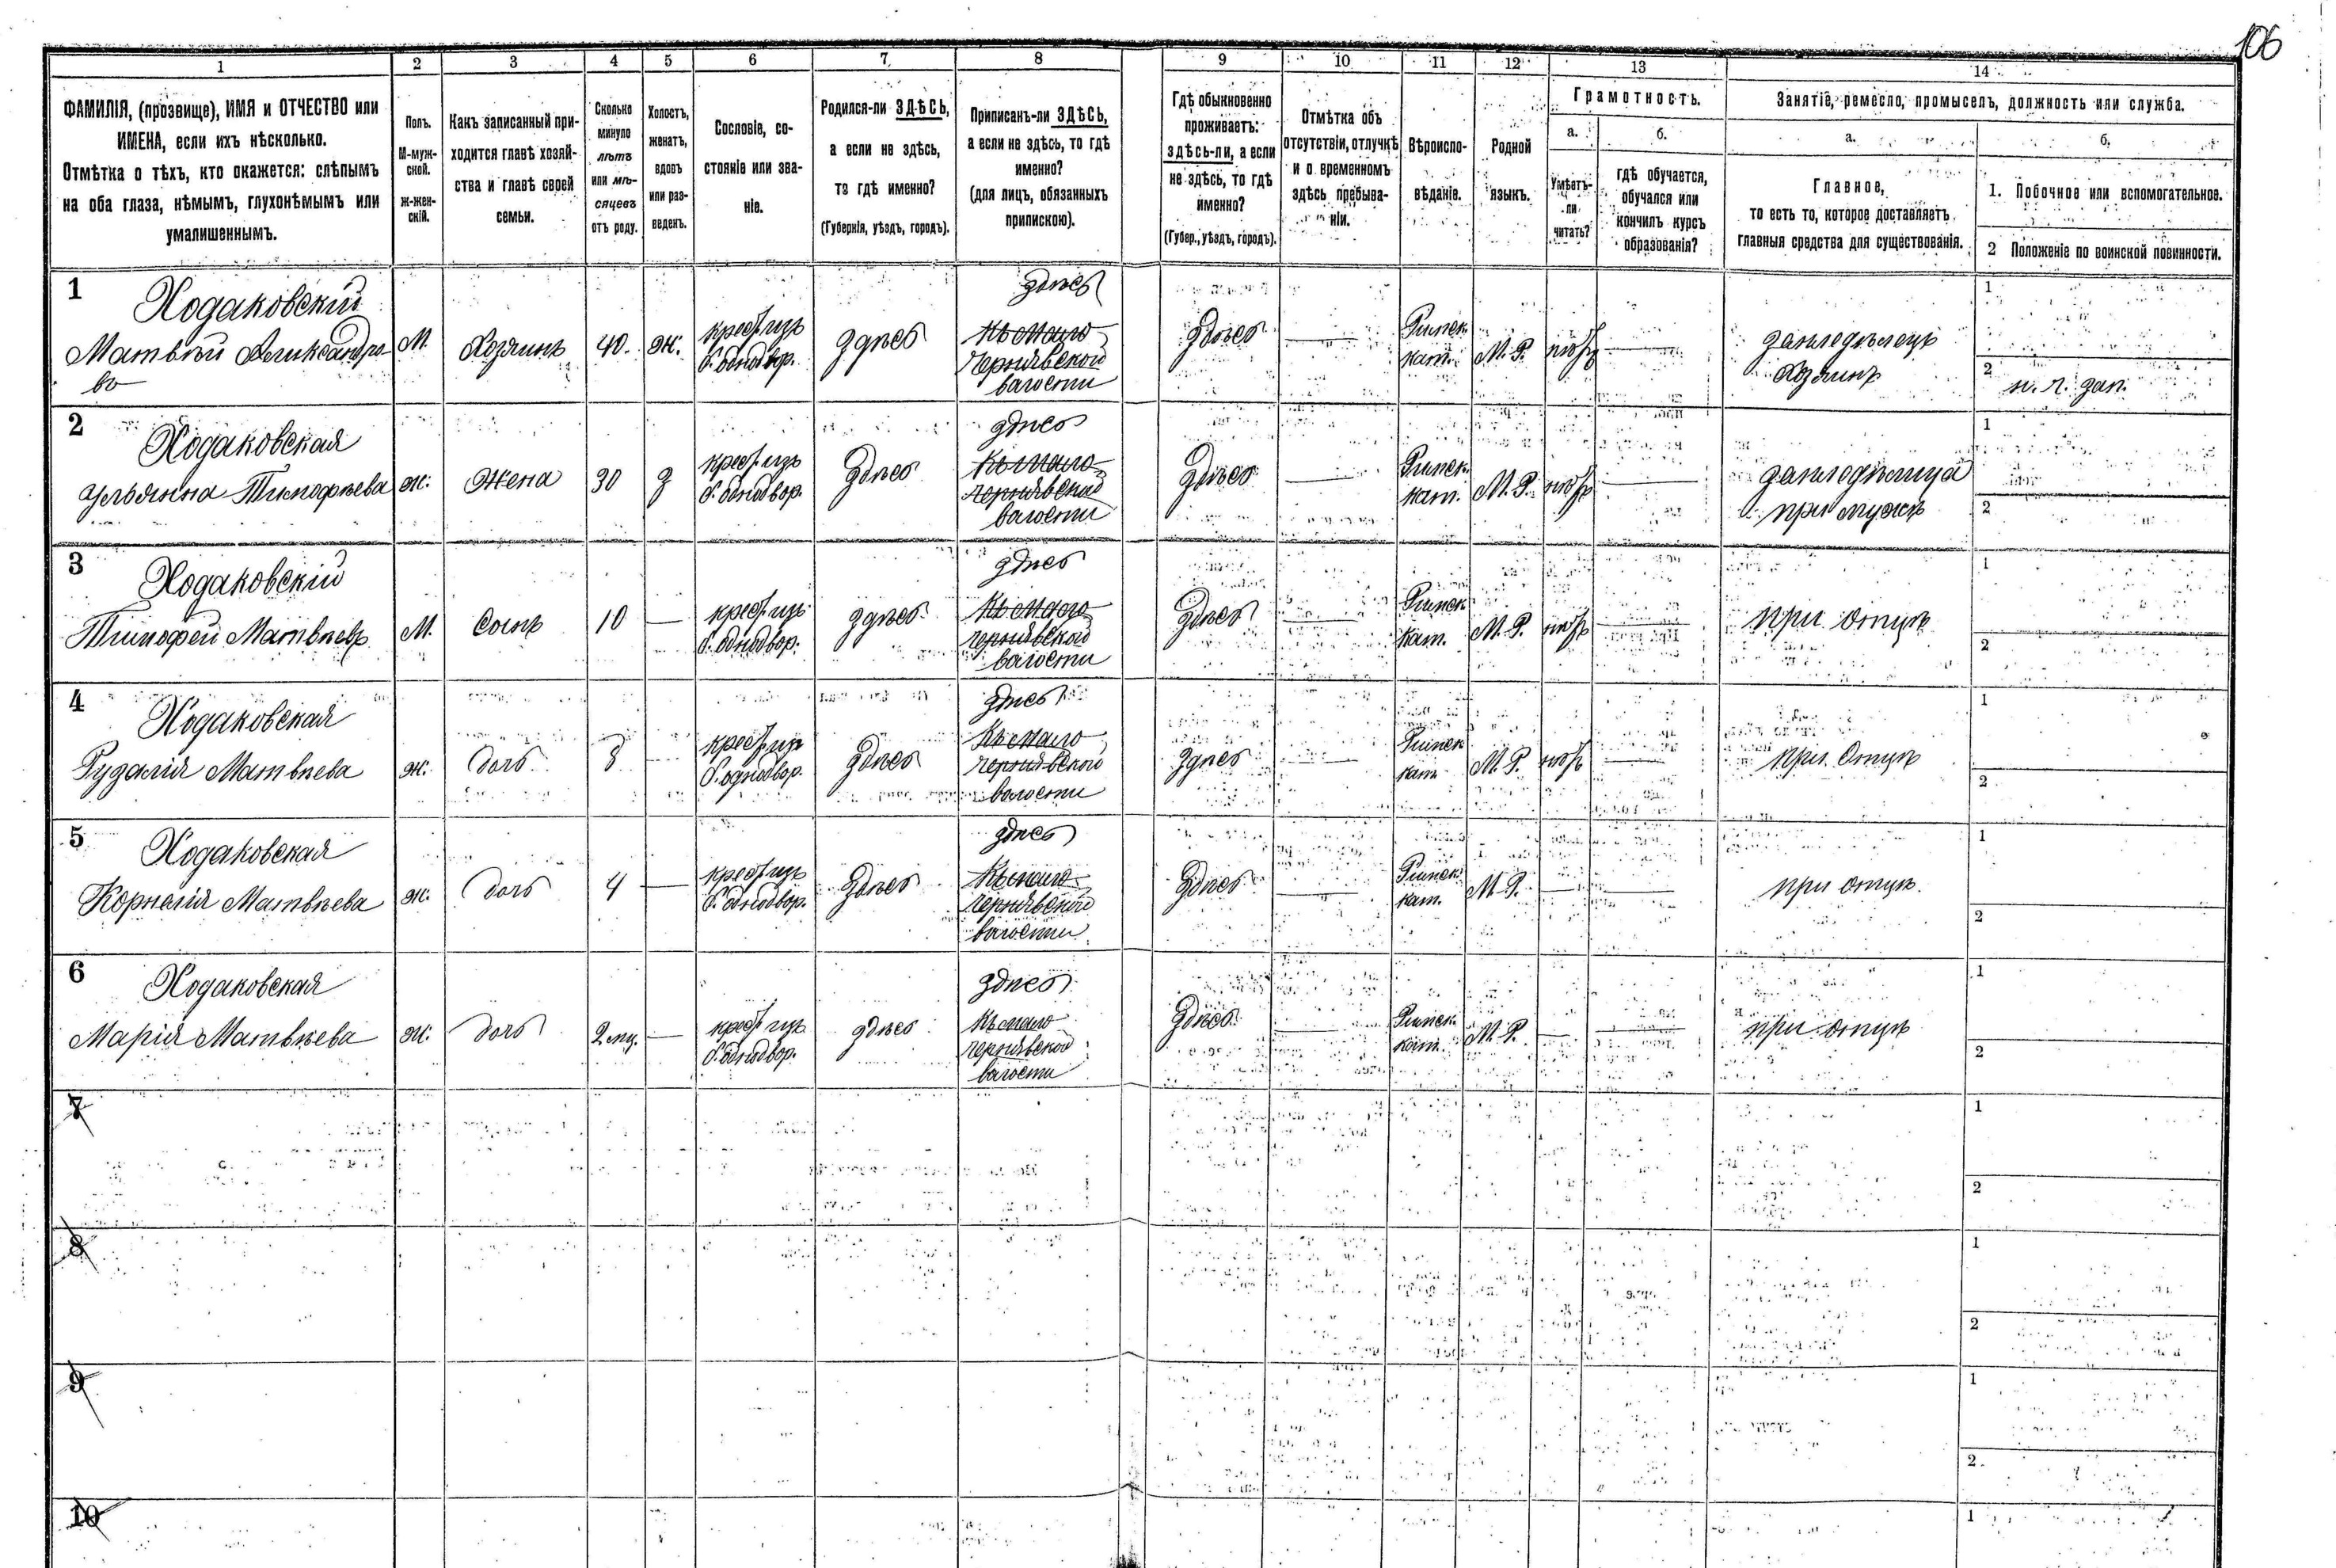 106
1 2 3 4 5 6 7 8 9 10 11 12 13 14
ФАМИЛІЯ, (прозвище), ИМЯ и ОТЧЕСТВО или
ИМЕНА, если ихъ нѣсколько.
Отмѣтка о тѣхъ, кто окажется: слѣпымъ
на оба глаза, нѣмымъ, глухонѣмымъ или
умалишеннымъ.
Полъ.
М-муж-
ской.
ж-жен-
скій.
Какъ записанный при-
ходится главѣ хозяй-
ства и главѣ своей
семьи.
Сколько
минуло
лѣтъ
или мѣ-
сяцевъ
отъ роду.
Холостъ,
женатъ,
вдовъ
или раз-
веденъ.
Сословіе, со-
стояніе или зва-
ніе.
Родился-ли ЗДѢСЬ,
а если не здѣсь,
то гдѣ именно?
(Губернія, уѣздъ, городъ).
Приписанъ-ли ЗДѢСЬ,
а если не здѣсь, то гдѣ
именно?
(для лицъ, обязанныхъ
припискою).
Гдѣ обыкновенно
проживаетъ:
здѣсь-ли, а если
не здѣсь, то гдѣ
именно?
(Губер., уѣздъ, городъ).
Отмѣтка объ
отсутствіи, отлучкѣ
и о временномъ
здѣсь пребыва-
ніи.
Вѣроиспо-
вѣданіе.
Родной
языкъ.
Грамотность.
а.
Умѣетъ-
ли
читать?
б.
гдѣ обучается,
обучался или
кончилъ курсъ
образованія?
Занятіе, ремесло, промыселъ, должность или служба.
а.
Главное,
то есть то, которое доставляетъ
главныя средства для существованія.
б.
1. Побочное или вспомогательное.
2 Положеніе по воинской повинности.
1
Ходаковскій
Матвѣй Александро-
въ
М.
Хозяинъ
40.
ж.
крест. изъ
б. однодвор.
здѣсь
здѣсь
волости
здѣсь
—
Римск
кат.
М. Р.
нѣтъ
—
земледѣлецъ
Хозяинъ
1
2
н. ч. зап.
2
Ходаковская
Ульянна Тимофѣева
ж.
жена
30
з
крест. изъ
б. однодвор.
здѣсь
здѣсь
волости
здѣсь
—
Римск
кат.
М. Р.
нѣтъ
—
земледѣлица
при мужѣ
1
2
3
Ходаковскій
Тимофей Матвѣевъ
М.
Сынъ
10
—
крест. изъ
б. однодвор.
здѣсь
здѣсь
волости
здѣсь
—
Римск
кат.
М. Р.
нѣтъ
—
при отцѣ
1
2
4
Ходаковская
Рузалія Матвѣева
ж.
дочь
8
—
крест. изъ
б. однодвор.
здѣсь
здѣсь
волости
здѣсь
—
Римск
кат.
М. Р.
нѣтъ
—
при отцѣ
1
2
5
Ходаковская
Корнелія Матвѣева
ж.
дочь
4
—
крест. изъ
б. однодвор.
здѣсь
здѣсь
волости
здѣсь
—
Римск
кат.
М. Р.
—
—
при отцѣ.
1
2
6
Ходаковская
Марія Матвѣева
ж.
дочь
2 мц.
—
крест. изъ
б. однодвор.
здѣсь
здѣсь
волости
здѣсь
—
Римск
кат.
М. Р.
—
—
при отцѣ
1
2
7
1
2
8
1
2
9
1
2
10
1